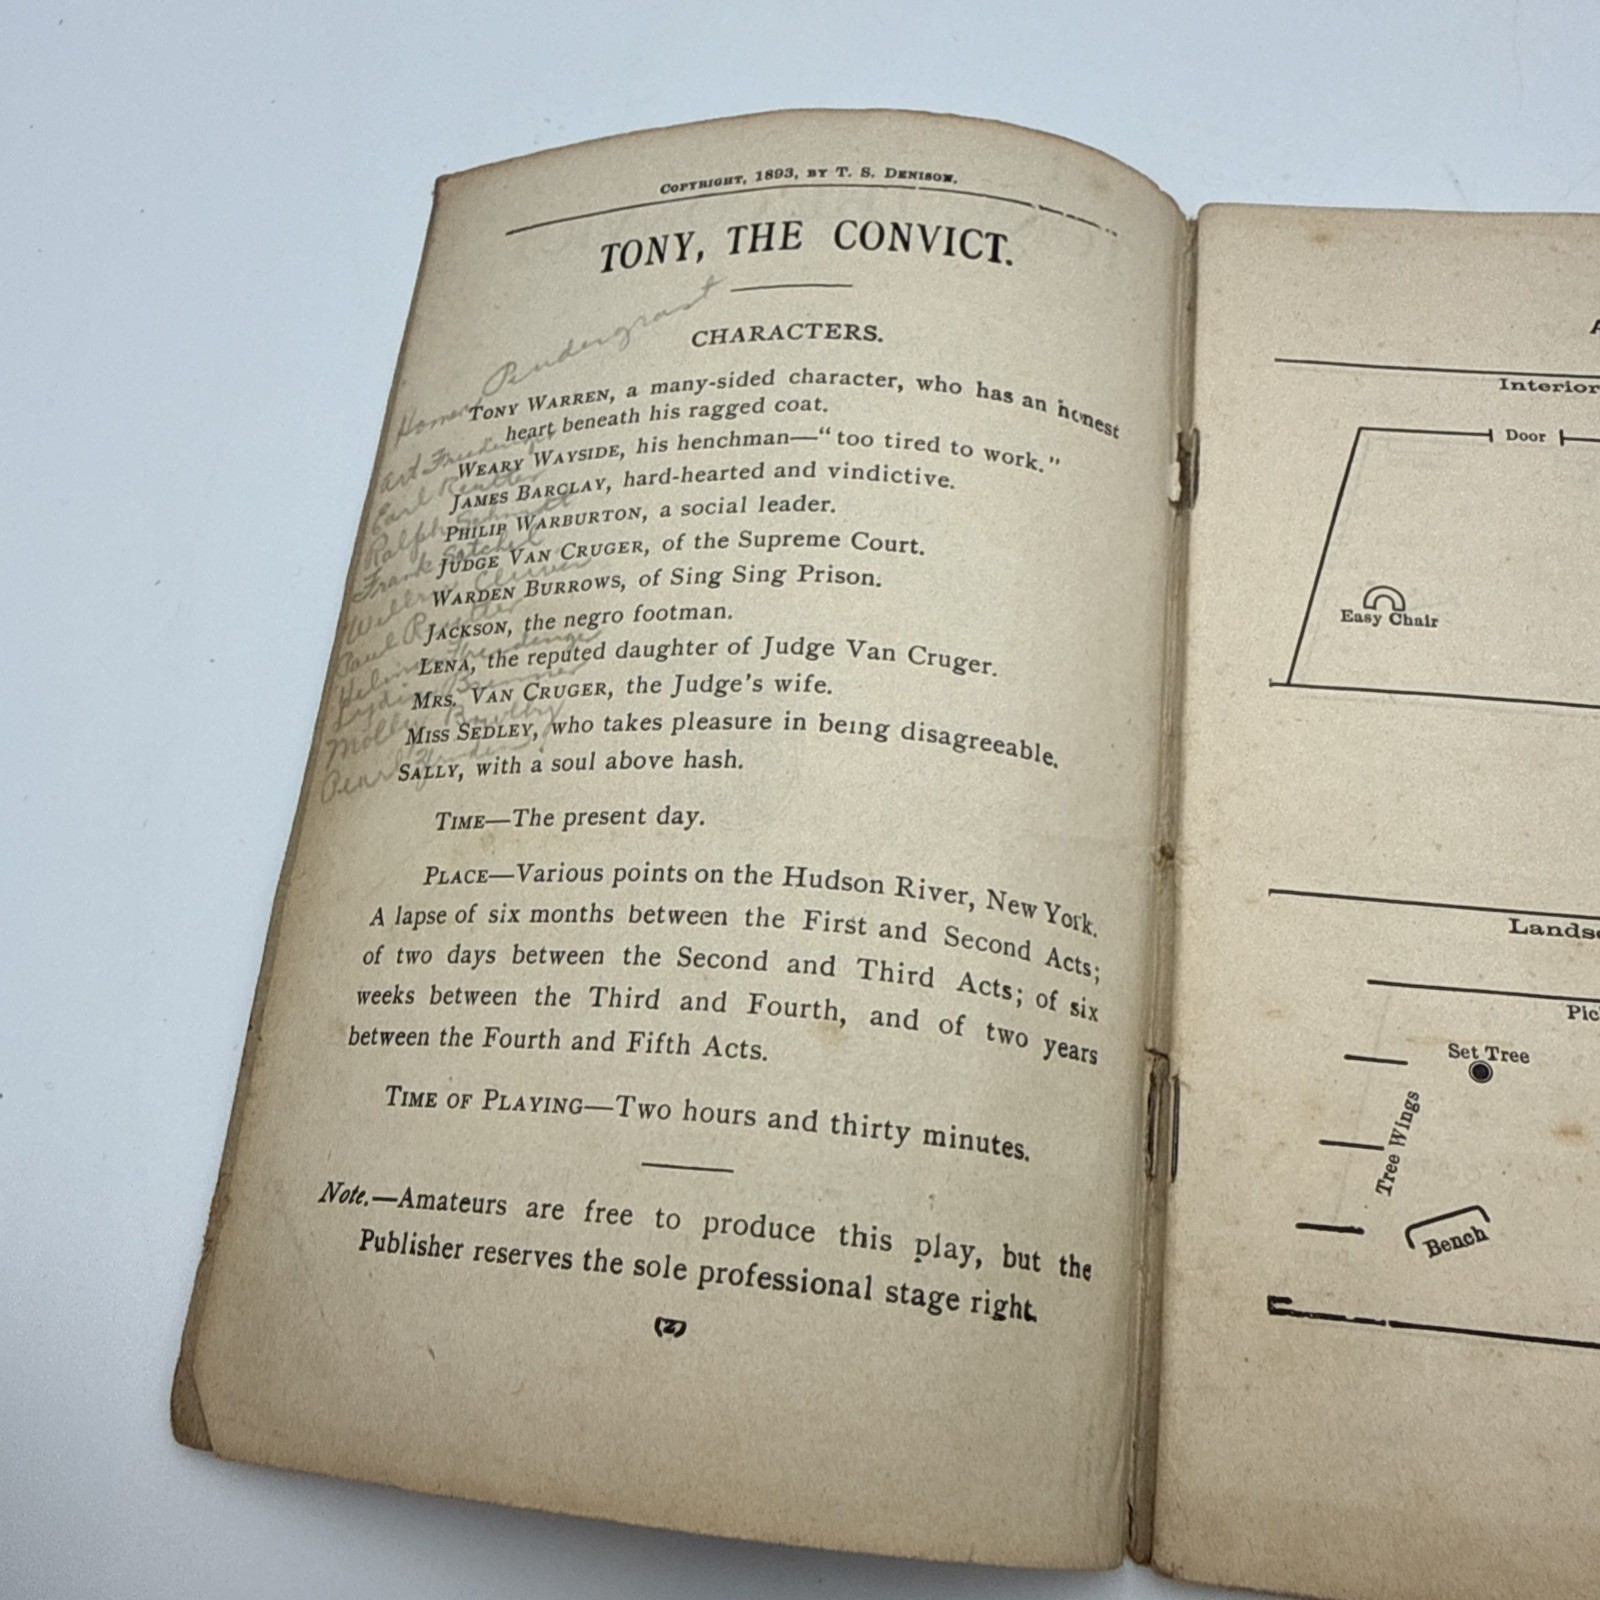 COPYRIGHT, 1893, BY T. S. DENISON.
TONY, THE CONVICT.
Pendergrast
CHARACTERS.
Homer
TONY WARREN, a many-sided character, who has an honest
heart beneath his ragged coat.
WEARY WAYSIDE, his henchman—"too tired to work."
Earl
JAMES BARCLAY, hard-hearted and vindictive.
Ralph
PHILIP WARBURTON, a social leader.
Frank
JUDGE VAN CRUGER, of the Supreme Court.
WARDEN BURROWS, of Sing Sing Prison.
Paul
JACKSON, the negro footman.
LENA, the reputed daughter of Judge Van Cruger.
MRS. VAN CRUGER, the Judge's wife.
MISS SEDLEY, who takes pleasure in being disagreeable.
Pearl
SALLY, with a soul above hash.
TIME—The present day.
PLACE—Various points on the Hudson River, New York.
A lapse of six months between the First and Second Acts;
of two days between the Second and Third Acts; of six
weeks between the Third and Fourth, and of two years
between the Fourth and Fifth Acts.
TIME OF PLAYING—Two hours and thirty minutes.
Note.—Amateurs are free to produce this play, but the
Publisher reserves the sole professional stage right.
(2)
A
Interior
Door
Easy Chair
Lands
Pic
Set Tree
Tree Wings
Bench